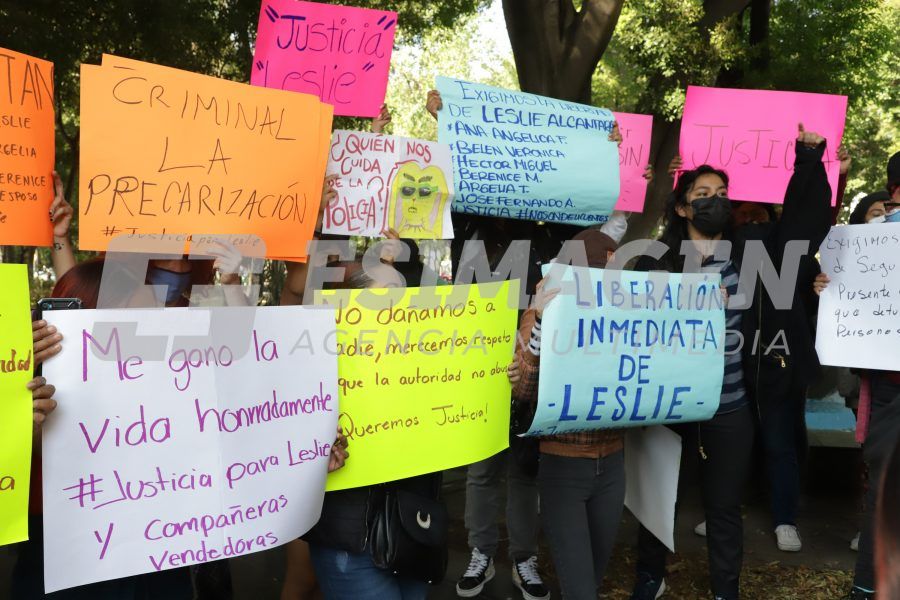 "Justicia
Leslie"
TAN
ESLIE
RGELIA
ERENICE
ESPOSO
CRIMINAL
LA
PRECARIZACIÓN
#Justicia para Leslie
¿QUIÉN NOS
CUIDA
DE LA
POLICÍA?
EXIGIMOS LA LIBERTAD
DE LESLIE ALCANTARA
*ANA ANGELICA F.
*BELEN VERONICA
*HECTOR MIGUEL
BERENICE M.
ARGELIA T.
JOSE FERNANDO A.
JUSTICIA #NOSONDELINCUENTES
JUSTICIA
EXIGIMOS
de Segu
Presente
que detu
Persona
LIBERACIÓN
INMEDIATA
DE
-LESLIE-
No dañamos a
nadie, merecemos respeto
que la autoridad no abuse
Queremos Justicia!
Me gano la
vida honradamente
#Justicia para Leslie
y compañeras
vendedoras
ESIMAGEN
AGENCIA MULTIMEDIA